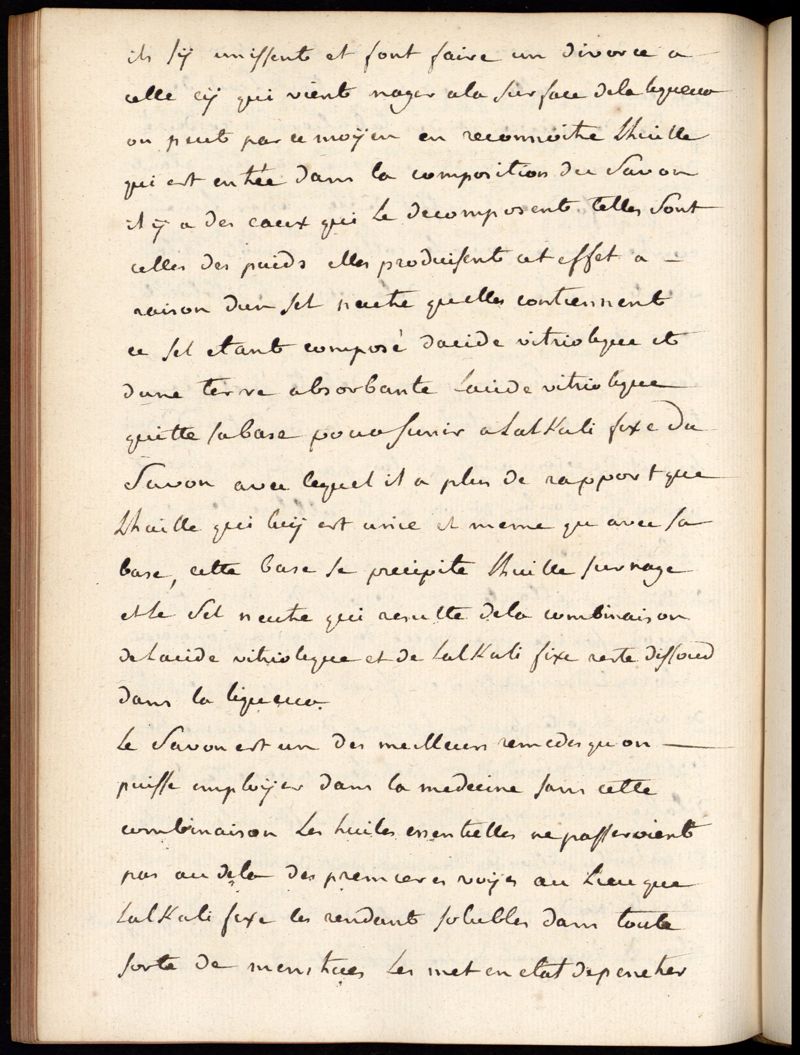 ils sÿ unissent et font faire un divorce a
celle cÿ qui vient nager ala surface dela liqueur
on peut par ce moÿen en reconnoitre Lhuille
qui est entrée dans la composition du Savon
il ÿ a des eaux qui Le decomposent telles sont
celles des puids elles produisent cet effet a —
raison dun Sel neutre quelles contiennent
ce Sel etant composé dacide vitriolique et
dune terre absorbante Lacide vitriolique
quitte sa base pour sunir a Lalkali fixe du
Savon avec lequel il a plus de rapport que
Lhuille qui luÿ est unie et meme qu avec sa
base, cette base se precipite Lhuille surnage
et le Sel neutre qui resulte dela combinaison
de Lacide vitriolique et de Lalkali fixe reste dissoud
dans la liqueur.
Le Savon est un des meilleurs remedes qu on —
puisse emploÿer dans la medecine sans cette
combinaison Les huiles essentielles ne passeroient
pas au dela des premieres voÿes au Lieu que
Lalkali fixe les rendant solubles dans toute
sorte de menstrues Les met en etat de penetrer